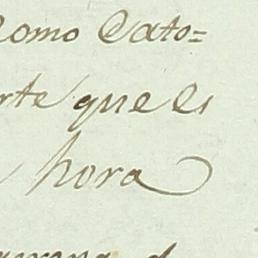 Como Cato=
rte que es
hora